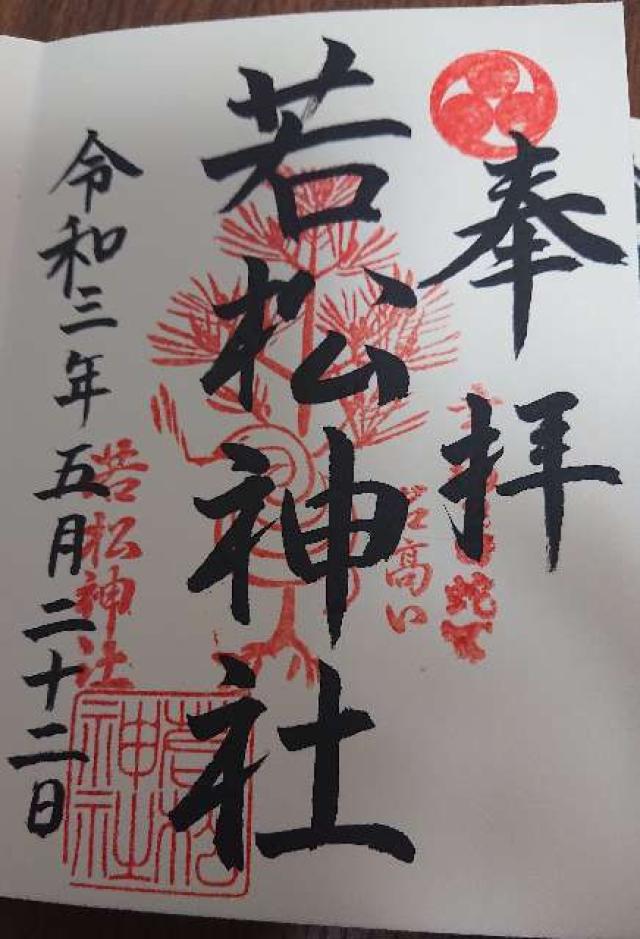 奉拝
若高い
若松神社
令和三年五月二十二日
若松神社
若松神社